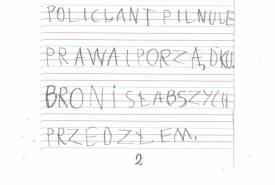 POLICJANT PILNUJE
PRAWA I PORZĄDKU.
BRONI SŁABSZYCH
PRZED ZŁEM.
2